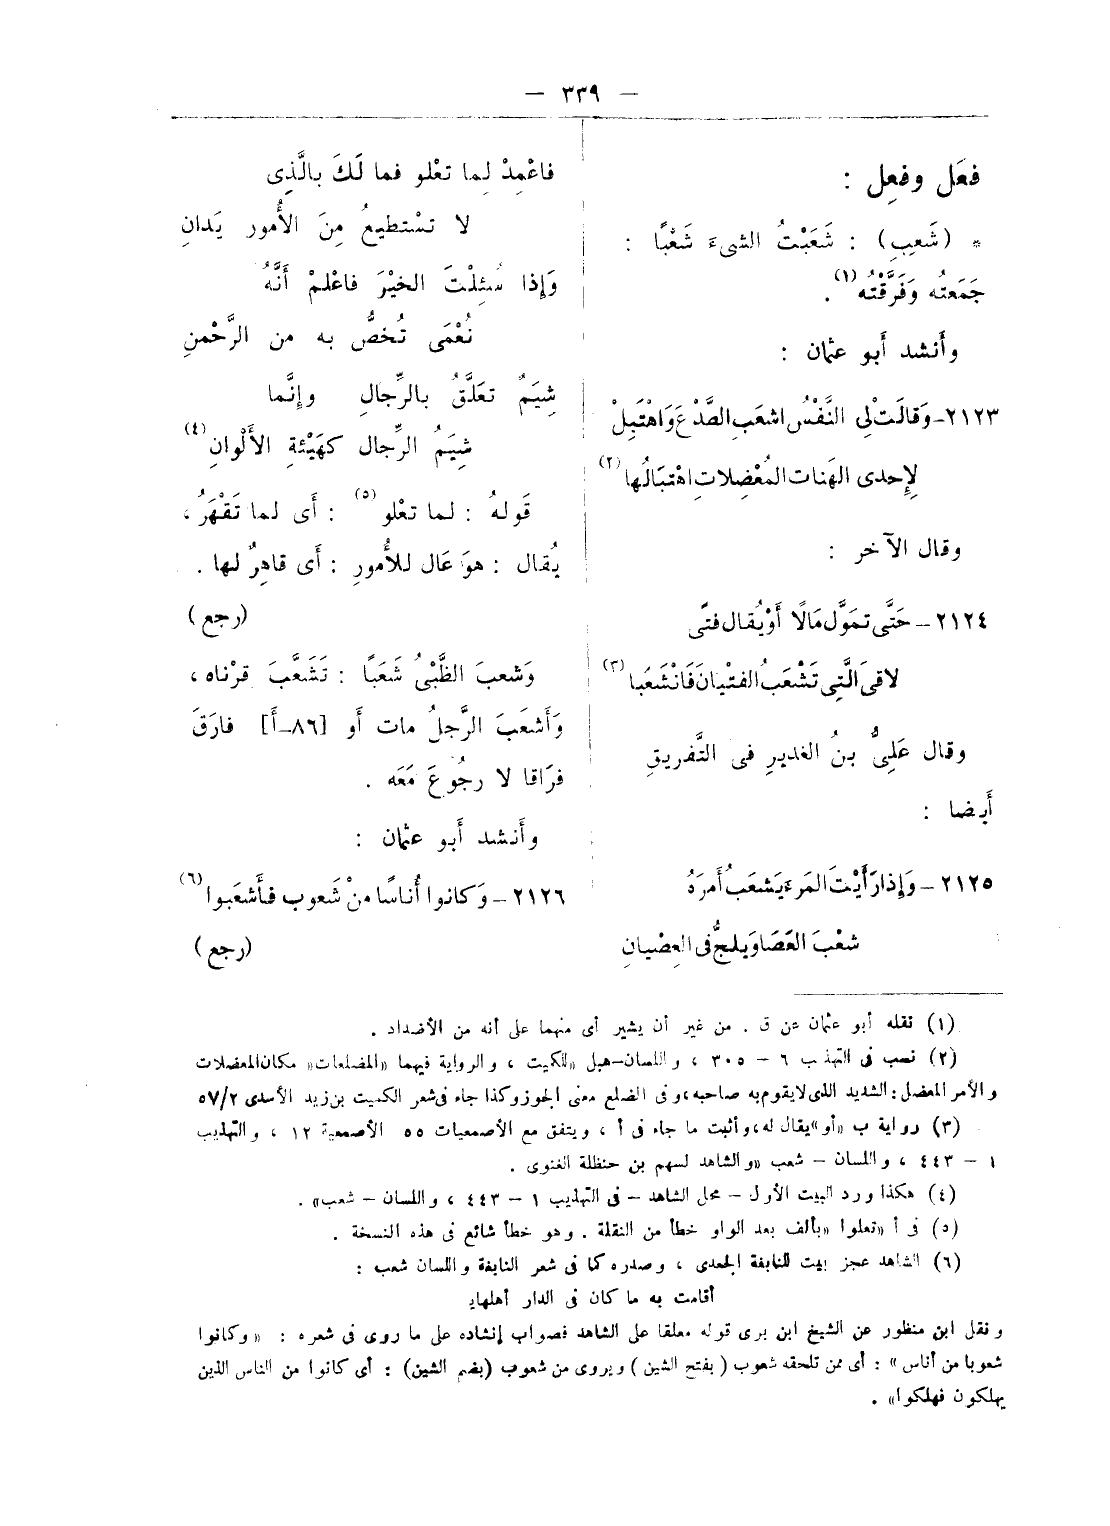 — ٣٣٩ —
فعَل وفعِل :
* (شَعِب) : شَعَبْتُ الشىءَ شَعْبًا :
جَمَعتُه وَفَرَّقْتُه (١) .
وأَنشد أَبو عثمان :
٢١٢٣ـ وَقالَتْ لِى النَّفْسُ اشعَبِ الصَّدْعَ وَاهْتَبِلْ
لِإحدى الهَنات المُعْضِلاتِ اهْتِبَالُها (٢)
وقال الآخر :
٢١٢٤ ـ حَتَّى تمَوَّل مَالًا أَوْ يُقال فتًى
لاقىَ الَّتِى تَشْعَبُ الفتْيانَ فَانْشَعَبا (٣)
وقال عَلِىُّ بنُ الغديرِ فى التَّفريقِ
أَيضا :
٢١٢٥ ـ وَإِذا رَأَيْتَ المَرءَ يَشعَبُ أَمرَهُ
شعْبَ العَصَا وَيلجُّ فى العِصْيانِ
فاعْمِدْ لِما تعْلو فما لَكَ بالَّذِى
لا تسْتطيعُ مِنَ الأُمور يَدانِ
وَإِذا سُئِلْتَ الخيْرَ فاعْلمْ أَنَّهُ
نُعْمَى تُخصُّ به من الرَّحْمنِ
شِيَمٌ تعَلَّقُ بالرِّجالِ وإِنَّما
شِيَمُ الرِّجال كهَيْئةِ الأَلْوانِ (٤)
قَولهُ : لما تعْلو (٥) : أَى لما تَقْهَرُ ،
يُقال : هوَ عَال للأُمورِ : أَى قاهِرٌ لها .
(رجع)
وَشعبَ الظَّبْىُ شَعَبًا : تَشَعَّبَ قرْناه ،
وَأَشعَبَ الرَّجلُ مات أَو [٨٦ـ أَ] فارَقَ
فرَاقا لا رجُوعَ مَعَه .
وأَنشد أَبو عثمان :
٢١٢٦ ـ وَكانوا أُناسًا منْ شَعوب فأَشعَبوا (٦)
(رجع)
(١) نقله أبو عثمان عن ق . من غير أن يشير أى منهما على أنه من الأضداد .
(٢) نسب فى التهذيب ٦ – ٣٠٥ ، واللسان–هبل «للكميت ، والرواية فيهما «المضلعات» مكان المعضلات
والأمر المعضل : الشديد الذى لايقوم به صاحبه ، وفى الضلع معنى الجوز وكذا جاء فى شعر الكميت بن زيد الأسدى ٥٧/٢
(٣) رواية ب «أو» يقال له ، وأثبت ما جاء فى أ ، ويتفق مع الأصمعيات ٥٥ الأصمعية ١٢ ، والتهذيب
١ – ٤٤٣ ، واللسان – شعب «والشاهد لسهم بن حنظلة الغنوى .
(٤) هكذا ورد البيت الأول – محل الشاهد – فى التهذيب ١ – ٤٤٣ ، واللسان – شعب» .
(٥) فى أ «تعلوا «بألف بعد الواو خطأ من النقلة . وهو خطأ شائع فى هذه النسخة .
(٦) الشاهد عجز بيت للنابغة الجعدى ، وصدره كما فى شعر النابغة واللسان شعب :
أقامت به ما كان فى الدار أهلها
ونقل ابن منظور عن الشيخ ابن برى قوله معلقا على الشاهد فصواب إنشاده على ما روى فى شعره : «وكانوا
شعوبا من أناس» : أى ممن تلحقه شعوب (بفتح الشين) ويروى من شعوب (بضم الشين) : أى كانوا من الناس الذين
يهلكون فهلكوا» .